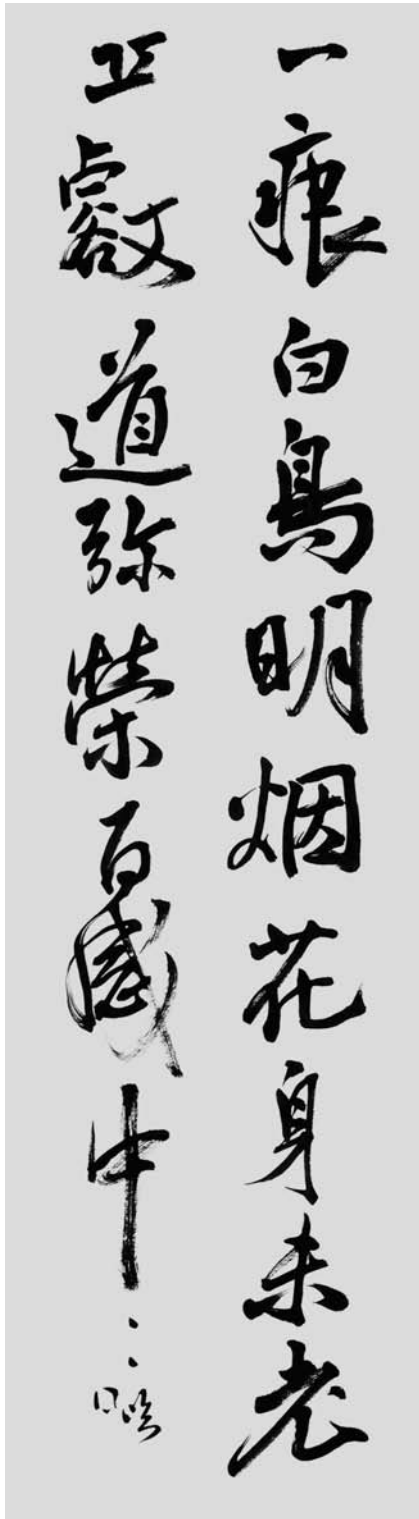 一痕白鳥明烟花身未老
丘㕡道弥榮百感中